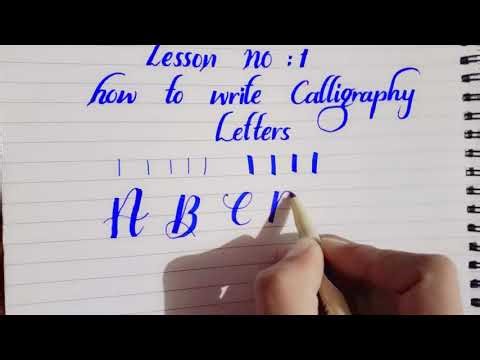 Lesson no : 1
how to write Calligraphy
Letters
A B C